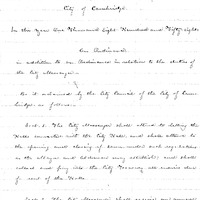 City of Cambridge.
In the Year One Thousand Eight Hundred and Fifty-eight
An Ordinance
in addition to an Ordinance in relation to the duties of
the City Messenger.
Be it ordained by the City Council of the City of Cam-
bridge as follows:
Sect. 1. The City Messenger shall attend to letting the
Hall connected with the City Hall, and shall attend to
the opening and closing of the same under such regulations
as the Mayor and Aldermen may establish; and shall
collect and pay into the City Treasury all monies due
for rent of the Hall.
Sect. 2. The City Messenger shall